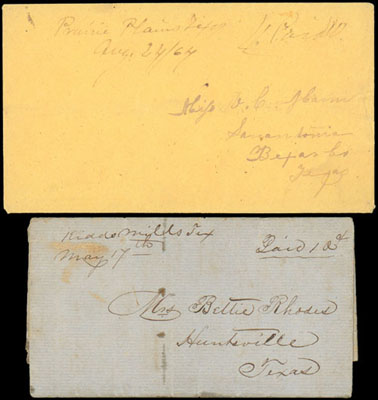 Prairie Plains Texas
Aug. 24/64
Paid
Miss V. C.
Sanantonia
Bexar Co
Texas
Kidds Mills Tex
May 17th
Paid 10¢
Mrs Bettie Rhodes
Huntsville
Texas